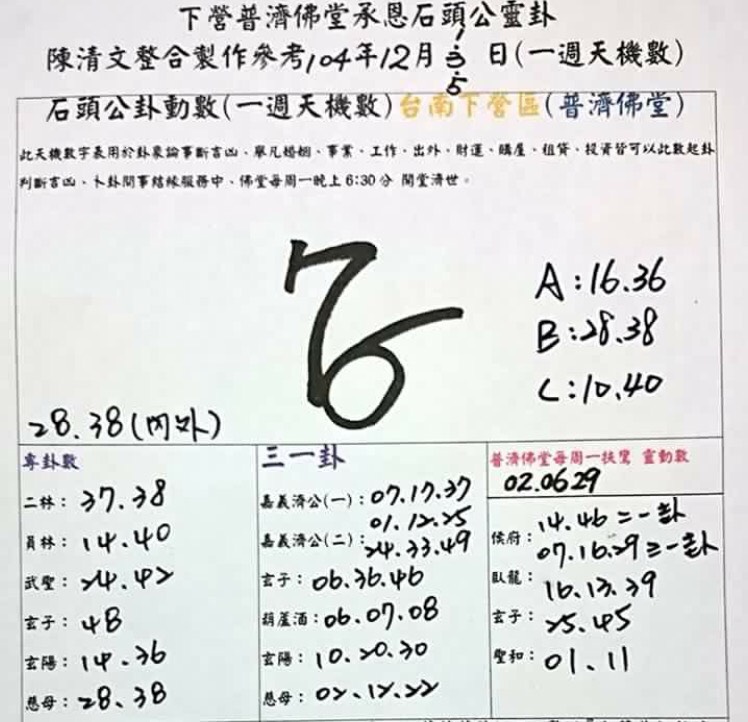 下營普濟佛堂承恩石頭公靈卦
陳清文整合製作參考104年12月1.3.5日(一週天機數)
石頭公卦動數(一週天機數)台南下營區(普濟佛堂)
此天機數字表用於卦象論事斷吉凶、舉凡婚姻、事業、工作、出外、財運、購屋、租貸、投資皆可以此數起卦
判斷吉凶、卜卦問事結緣服務中、佛堂每周一晚上6:30分 開堂濟世。
A:16.36
B:28.38
C:10.40
28.38(內外)
專卦數
二林: 37.38
員林: 14.40
武聖: 24.42
玄子: 48
玄陽: 14.36
慈母: 28.38
三一卦
嘉義濟公(一): 07.17.37
嘉義濟公(二): 01.12.25
24.33.49
玄子: 06.36.46
葫蘆酒: 06.07.08
玄陽: 10.20.30
慈母: 02.12.22
普濟佛堂每周一扶鸞 靈動數
02.0629
侯府: 14.46二一卦
07.16.29三一卦
臥龍: 16.13.39
玄子: 25.45
聖和: 01.11